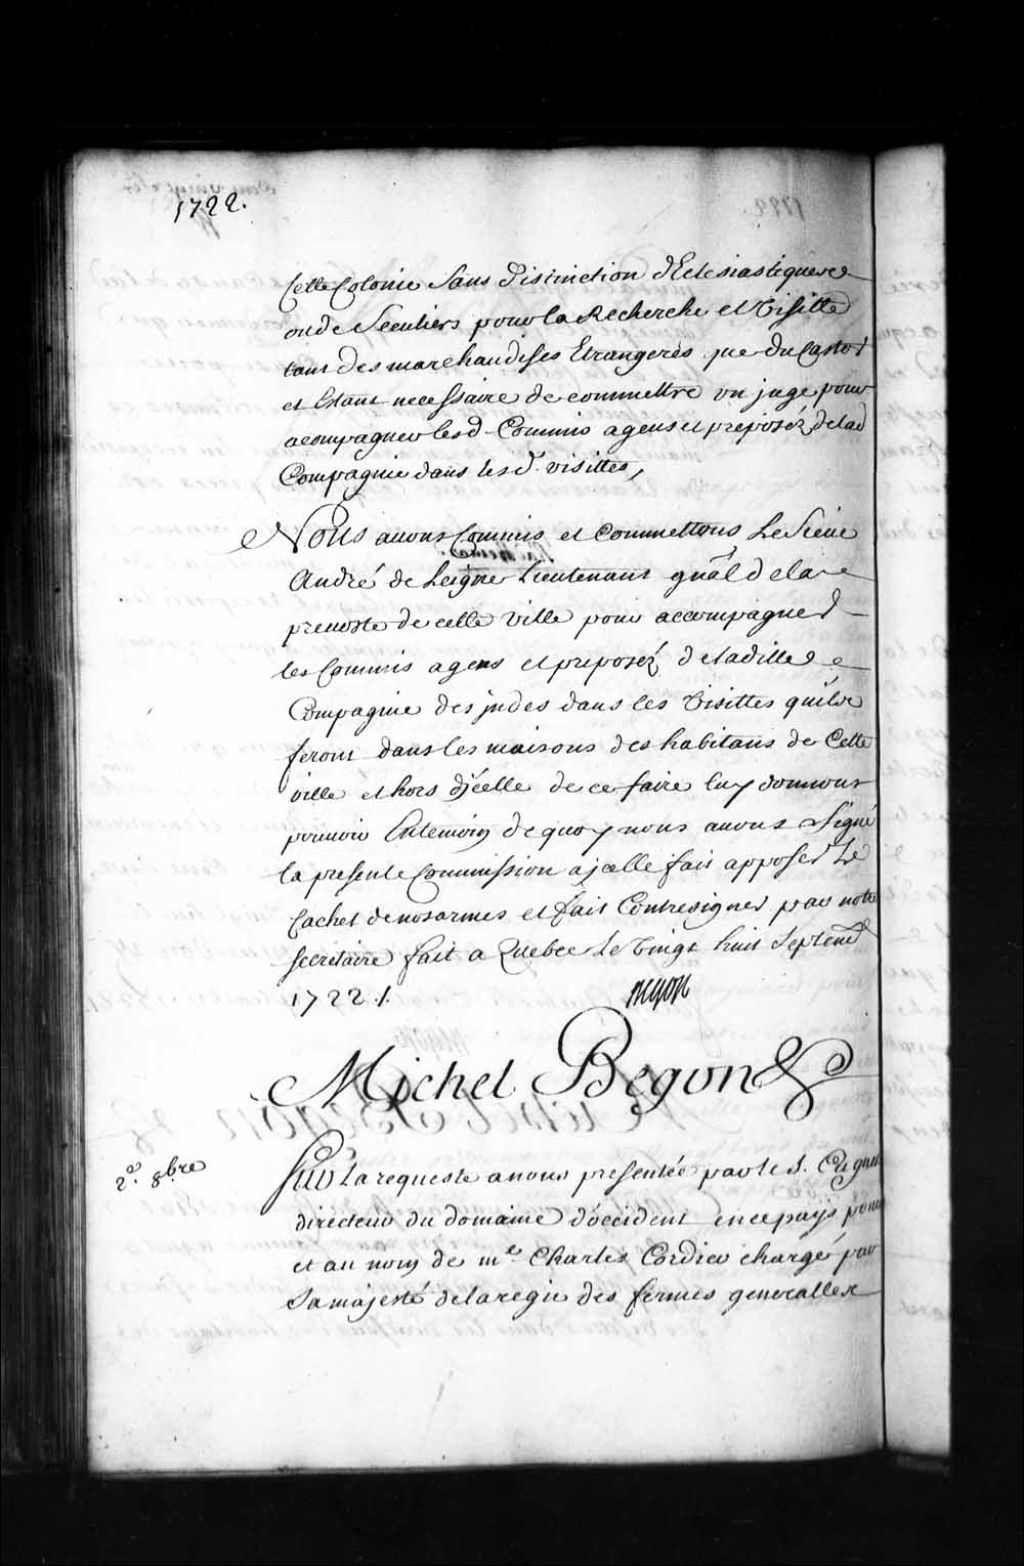 1722.
Cette Colonie Sans distinction d'Eclesiastiques
ou de Seculiers pour la Recherche et Visitte
tant des marchandises Etrangeres que du Castor
et Estant necessaire de commettre un juge pour
acompagner lesd. Commis agens et preposéz de lad
Compagnie dans lesd. visittes,
Nous avons Commis et Commettons Le Sieur
André de Leigne Lieutenant gnâl de la
prevoste de cette ville pour accompagner
les Commis agens et preposéz de laditte
Compagnie des jndes dans les Visittes quils
feront dans les maisons des habitans de Cette
ville et hors d'jcelle de ce faire luy donnons
pouvoir En temoin de quoy nous avons Signé
la presente Commission a jcelle fait apposer Le
Cachet de nos armes et fait Contresigner par notre
secretaire fait a Quebec Le Vingt huit Septembre
1722 ./.
Begon
Michel Begon &
2e. 8bre
Sur la requeste a nous presentée par le S. Cugnet
directeur du domaine d'occident en ce pays pour
et au nom de me. Charles Cordier chargé par
Sa majesté de la regie des fermes generalles